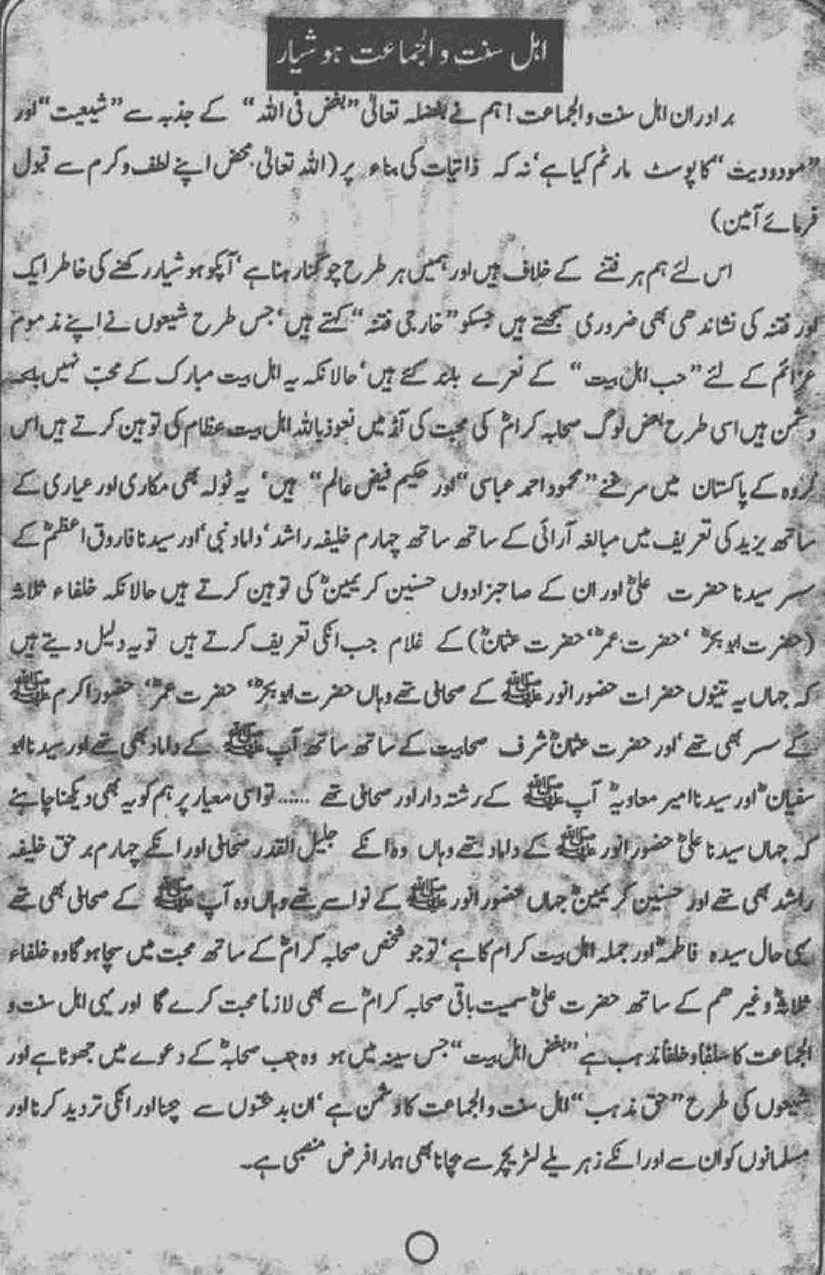 اہل سنت والجماعت ہوشیار
برادران اہل سنت والجماعت! ہم نے بفضلہ تعالیٰ ”بغض فی اللہ“ کے جذبہ سے ”شیعیت“ اور
”مودودیت“ کا پوسٹ مارٹم کیا ہے‘ نہ کہ ذاتیات کی بناء پر (اللہ تعالیٰ محض اپنے لطف و کرم سے قبول
فرمائے آمین)
اس لئے ہم ہر فتنے کے خلاف ہیں اور ہمیں ہر طرح چوکنا رہنا ہے‘ آپکو ہوشیار رکھنے کی خاطر ایک
اور فتنہ کی نشاندھی بھی ضروری سمجھتے ہیں جسکو ”خارجی فتنہ“ کہتے ہیں‘ جس طرح شیعوں نے اپنے مذموم
عزائم کے لئے ”حب اہل بیت“ کے نعرے بلند کئے ہیں‘ حالانکہ یہ اہل بیت مبارک کے محب نہیں بلکہ
دشمن ہیں اسی طرح بعض لوگ صحابہ کرامؓ کی محبت کی آڑ میں نعوذ باللہ اہل بیت عظام کی توہین کرتے ہیں اس
گروہ کے پاکستان میں سرغنے ”محمود احمد عباسی“ اور حکیم فیض عالم“ ہیں‘ یہ ٹولہ بھی مکاری اور عیاری کے
ساتھ یزید کی تعریف میں مبالغہ آرائی کے ساتھ ساتھ چہارم خلیفہ راشد‘ داماد نبی‘ اور سیدنا فاروق اعظمؓ کے
سسر سیدنا حضرت علیؓ اور ان کے صاحبزادوں حسنین کریمینؓ کی توہین کرتے ہیں حالانکہ خلفاء ثلاثہ
(حضرت ابوبکرؓ‘ حضرت عمرؓ‘ حضرت عثمانؓ) کے غلام جب انکی تعریف کرتے ہیں تو یہ دلیل دیتے ہیں
کہ جہاں یہ تینوں حضرات حضور انور ﷺ کے صحابی تھے وہاں حضرت ابوبکرؓ‘ حضرت عمرؓ‘ حضور اکرم ﷺ
کے سسر بھی تھے‘ اور حضرت عثمانؓ شرف صحابیت کے ساتھ ساتھ آپ ﷺ کے داماد بھی تھے اور سیدنا ابو
سفیانؓ اور سیدنا امیر معاویہؓ آپ ﷺ کے رشتہ دار اور صحابی تھے ...... تو اسی معیار پر ہم کو یہ بھی دیکھنا چاہئے
کہ جہاں سیدنا علیؓ حضور انور ﷺ کے داماد تھے وہاں وہ انکے جلیل القدر صحابی اور انکے چہارم برحق خلیفہ
راشد بھی تھے اور حسنین کریمینؓ جہاں حضور انور ﷺ کے نواسے تھے وہاں وہ آپ ﷺ کے صحابی بھی تھے
یہی حال سیدہ فاطمہؓ اور جملہ اہل بیت کرام کا ہے‘ تو جو شخص صحابہ کرامؓ کے ساتھ محبت میں سچا ہوگا وہ خلفاء
ثلاثہؓ وغیرھم کے ساتھ حضرت علیؓ سمیت باقی صحابہ کرامؓ سے بھی لازماً محبت کرے گا اور یہی اہل سنت و
الجماعت کا سلفاً و خلفاً مذہب ہے ”بغض اہل بیت“ جس سینہ میں ہو وہ حب صحابہؓ کے دعوے میں جھوٹا ہے اور
شیعوں کی طرح ”حق مذہب“ اہل سنت والجماعت کا دشمن ہے‘ ان بدبختوں سے بچنا اور انکی تردید کرنا اور
مسلمانوں کو ان سے اور انکے زہریلے لٹریچر سے بچانا بھی ہمارا فرض منصبی ہے۔